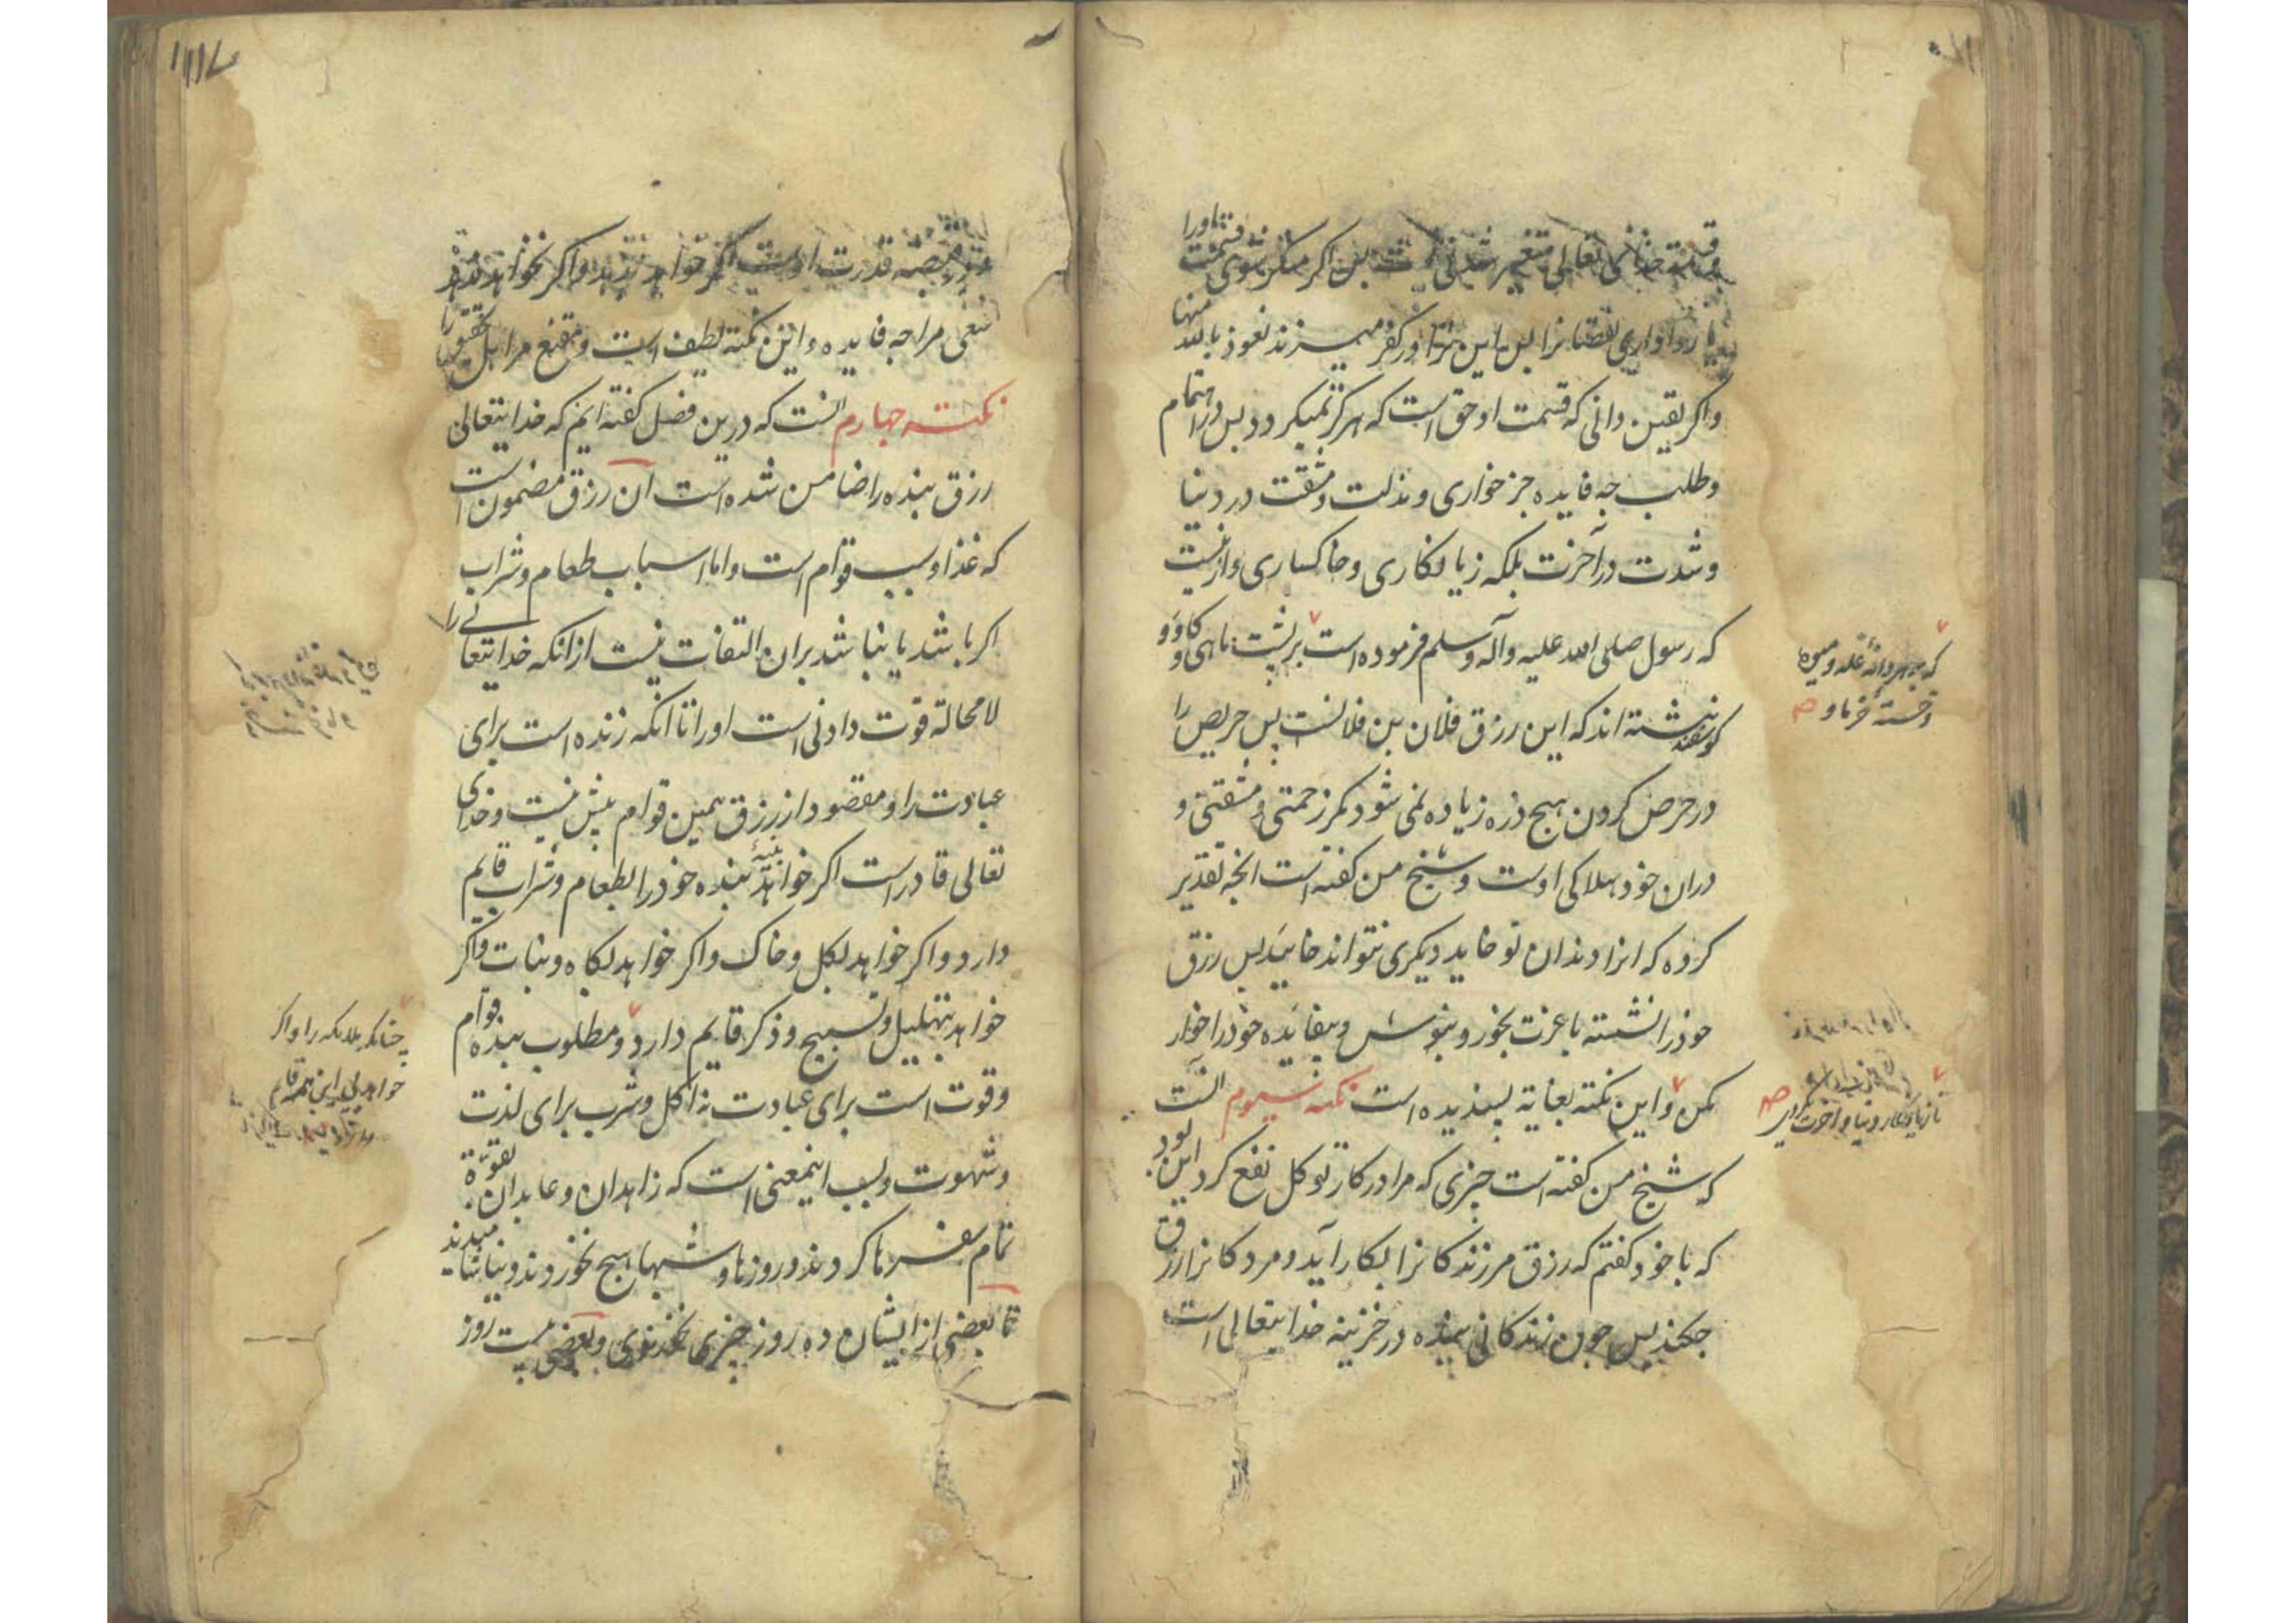 قسمت خدای تعالی متغیر شدنی نیست پس اگر منکر شوی قسمت اورا
یا رواداری نقصانرا پس این ترا در کفر میزند نعوذ بالله منها
واکر یقین دانی که قسمت او حق است که هرکز نمیکردد پس در اهتمام
وطلب چه فایده جز خواری ومذلت ومشقت در دنیا
وشدت در آخرت بلکه زیانکاری وخاکساری وازینست
که رسول صلی الله علیه وآله وسلم فرموده است بر پشت ماهی وکاو و
کوسفند نبشته اند که این رزق فلان بن فلانست پس حریص را
در حرص کردن هیچ ذره زیاده نمی شود مکر زحمتی ومشقتی و
دران خود هلاکی اوست وشیخ من کفته است انچه تقدیر
کرده که انرا دندان تو خاید دیکری نتواند خایید پس رزق
خودرا نشسته با عزت بخور وبنوش وبیفایده خودرا خوار
مکن واین نکته بغایة پسندیده است نکته سیوم انست
که شیخ من کفته است چیزی که مرا در کار توکل نفع کرد این بود
که با خود کفتم که رزق مر زندکانرا بکار آید ومردکانرا رزق
چکند پس چون زندکانی بنده در خزینه خدایتعالی است
که بر هر دانهٔ غله ومیوه
وخستهٔ خرما و صح
تا زیانکار دنیا وآخرت نکردی صح
ودر قبضه قدرت اوست اکر خواهد بدهد واکر نخواهد ندهد
سعی مرا چه فایده واین نکته لطیف است ومقنع مر اهل تحقیق را
نکته چهارم انست که درین فصل کفته ایم که خدایتعالی
رزق بنده را ضامن شده است آن رزق مضمون است
که غذا وسبب قوام است واما اسباب طعام وشراب
اکر باشد یا نباشد بران التفات نیست ازانکه خدایتعالی را
لا محالة قوت دادنی است اورا تا انکه زنده است برای
عبادت را ومقصود از رزق همین قوام بیش نیست وخدای
تعالی قادر است اکر خواهد بنیهٔ بنده خودرا بطعام وشراب قایم
دارد واکر خواهد بکل وخاک واکر خواهد بکاه ونبات واکر
خواهد بتهلیل وتسبیح وذکر قایم دارد ومطلوب بنده قوام
وقوت است برای عبادت نه اکل وشرب برای لذت
وشهوت وبسبب اینمعنی است که زاهدان وعابدان بقوة
تمام سفرها کردند وروزها وشبها هیچ نخوردند ونیاشامیدند
تا بعضی از ایشان ده روز چیزی نخورندی وبعضی بیست روز
چنانکه ملایکه را واکر
خواهد بی این همه قایم